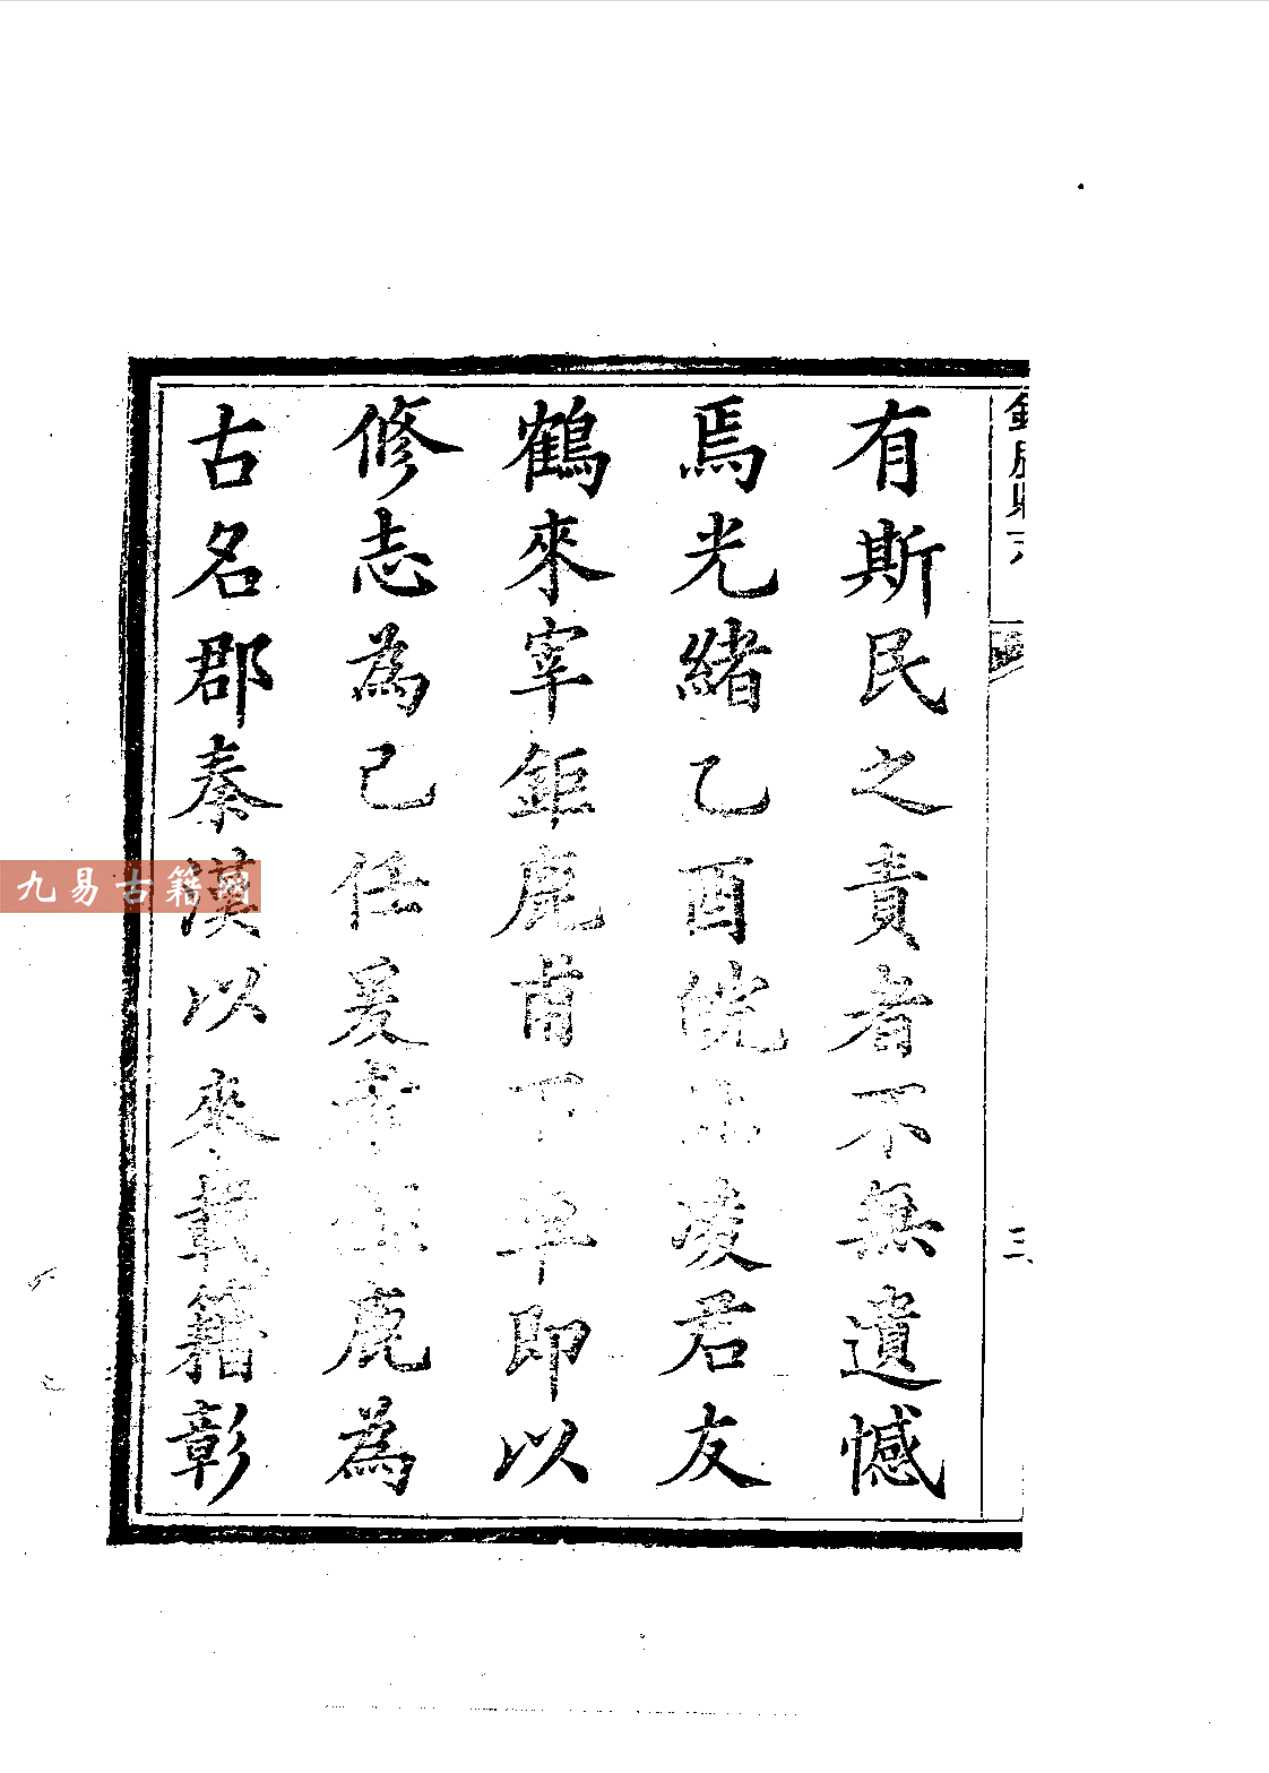 鉅鹿縣志
三
有斯民之責者不無遺憾
焉光緒乙酉皖凌君友
鶴來宰鉅鹿甫下車即以
修志為己任爰鹿為
古名郡秦漢以來載籍彰
九易古籍网